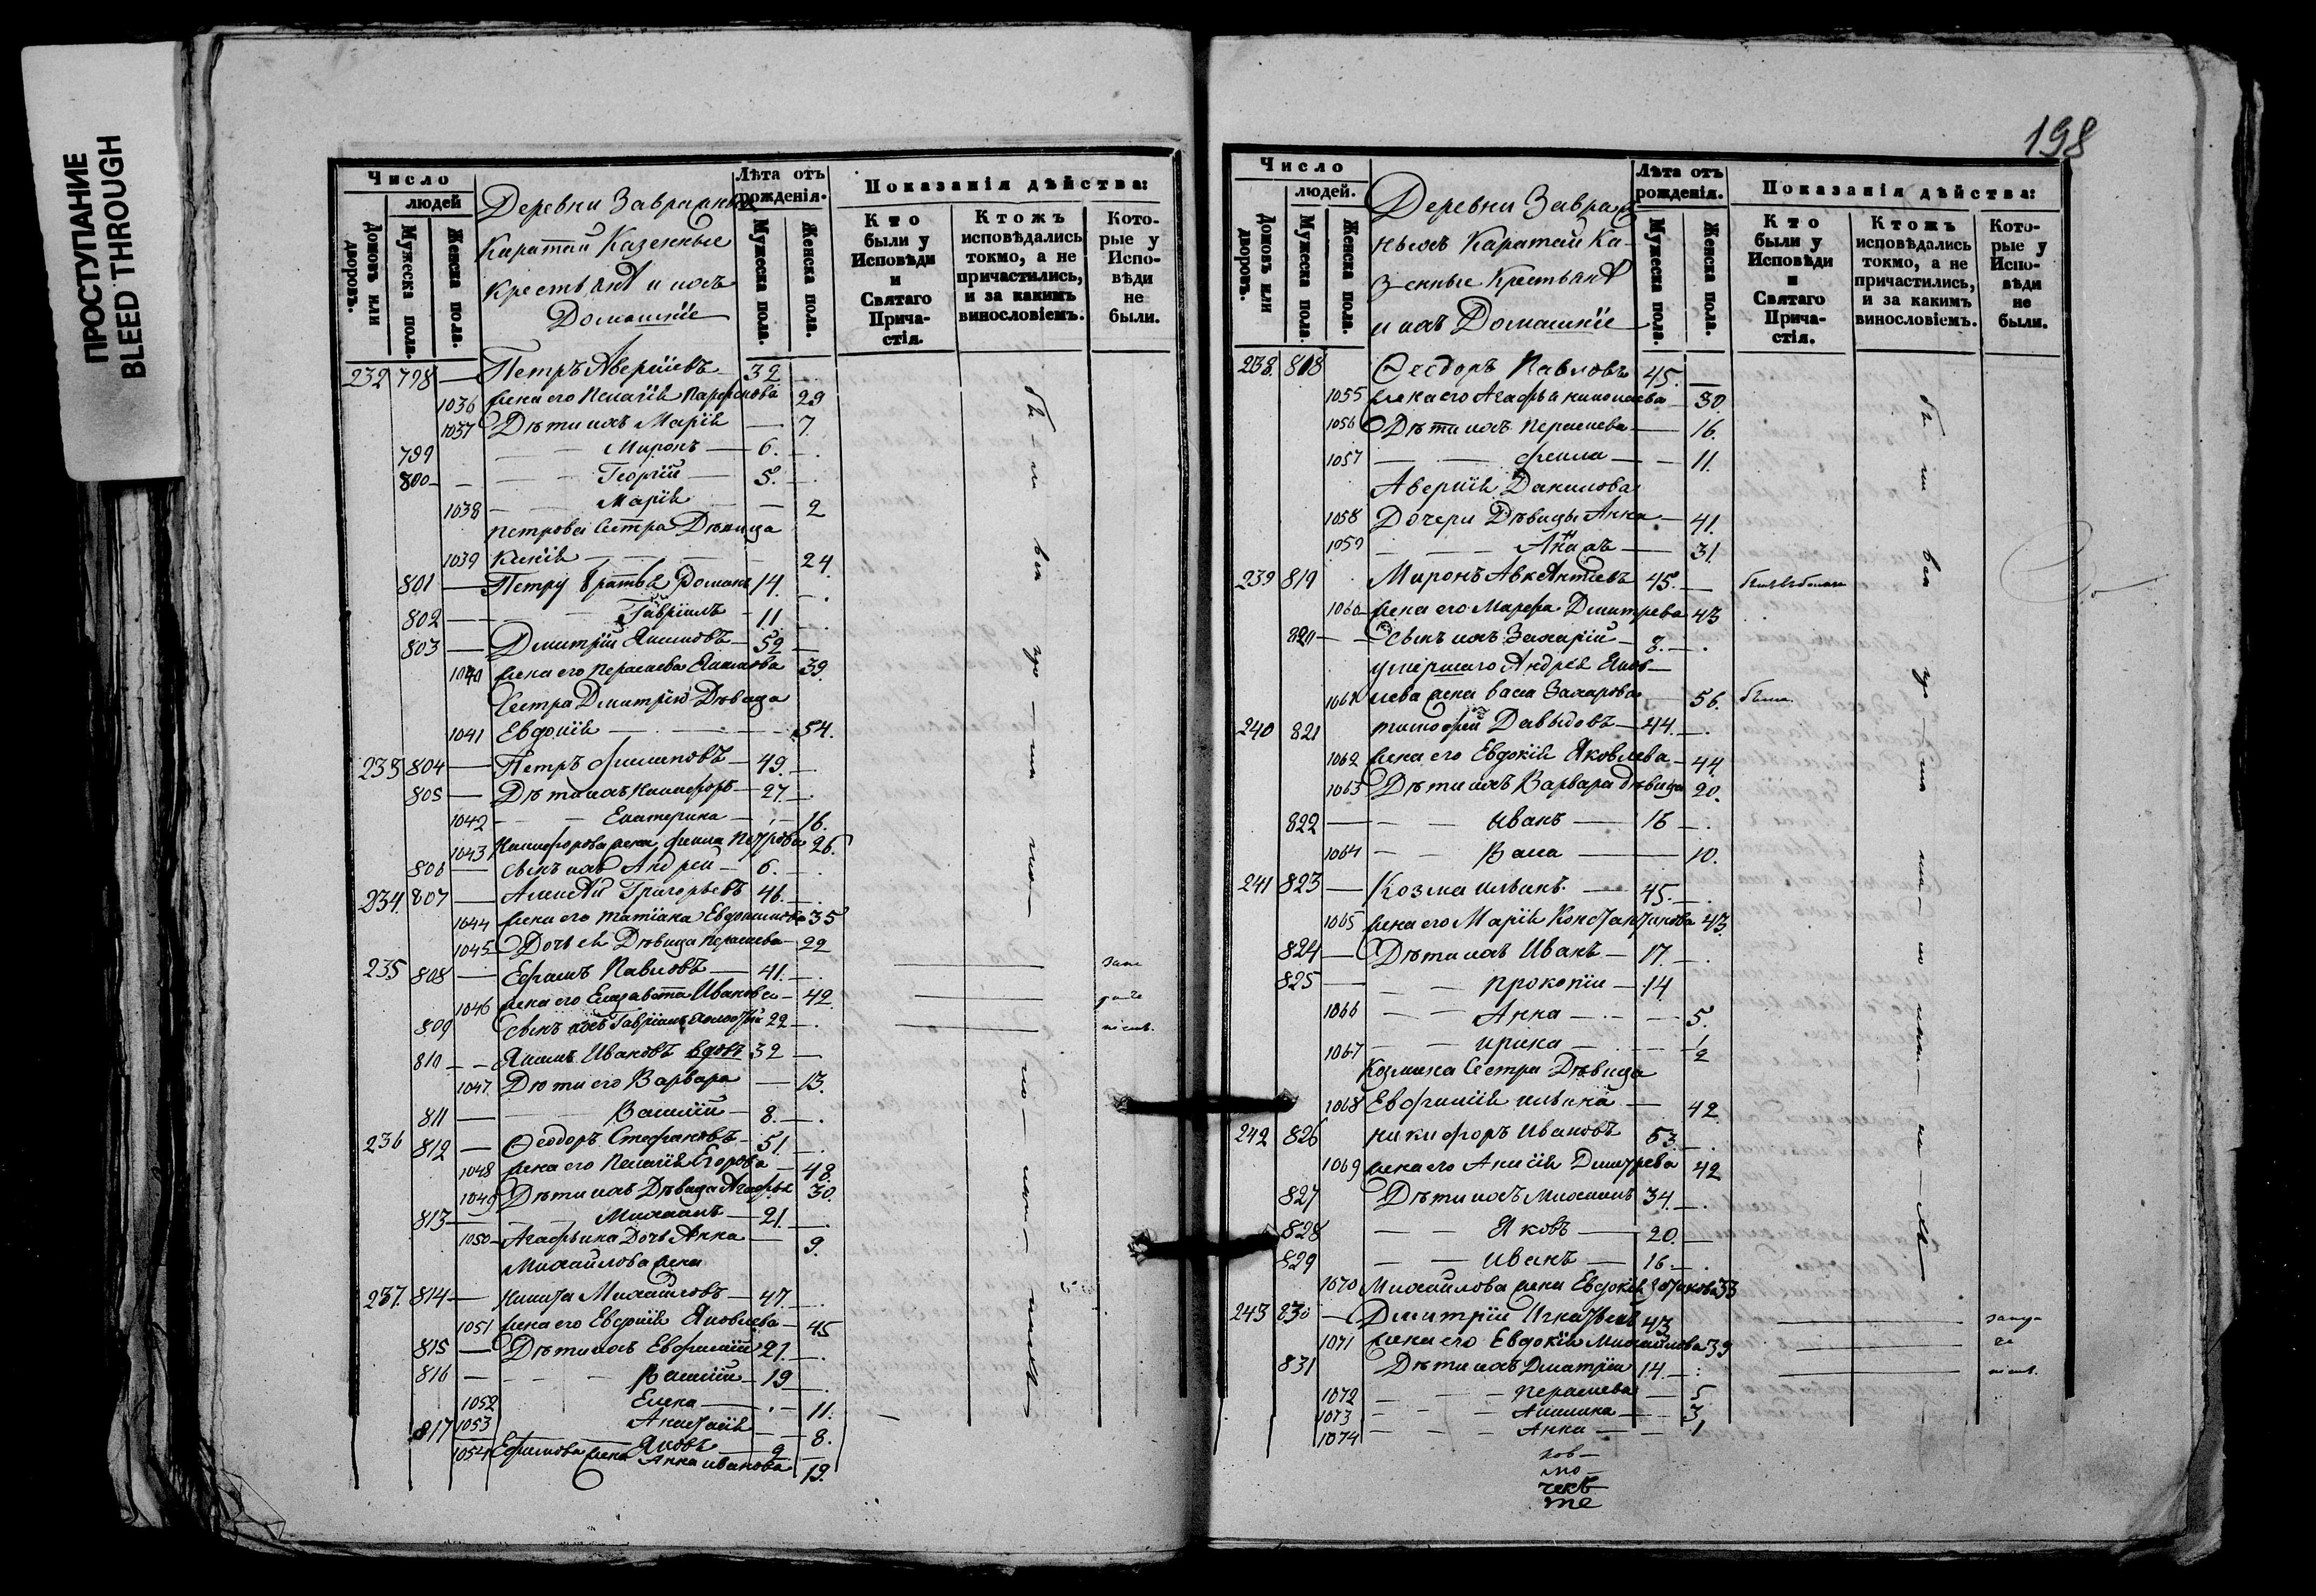 ПРОСТУПАНИЕ
BLEED THROUGH
Число
людей
Домовъ или дворовъ.
Мужеска пола.
Женска пола.
Деревни Завражныхъ
Каратай Казенные
Крестьянѣ и ихъ
Домашніе
Лѣта отъ рожденія.
Мужеска пола.
Женска пола.
Показанія дѣйства:
Кто были у Исповѣди и Святаго Причастія.
Ктожъ исповѣдались токмо, а не причастились, и за какимъ винословіемъ.
Которые у Исповѣди не были.
232 798 — Петръ Аверкіевъ 32
1036 жена его Пелагія 29
1037 Дѣти ихъ Марія — 7
799 — Миронъ — 6.
800 — Георгій — 5.
1038 — Марія — 2
Петрова Сестра Дѣвица
1039 Ксенія — 24
801 — Петру братья Романъ 14.
802 — Гавріилъ — 11
803 — Дмитрій 59
1040 жена его Параскева 39.
Сестра Дмитрію Дѣвица
1041 Евдокія — 54.
233 804 — Петръ Филиповъ — 49.
805 — Дѣти ихъ Никифоръ — 27.
1042 — Екатерина — 16.
1043 Никифорова жена Фекла Петрова 26.
806 — Сынъ ихъ Андрей — 6.
234. 807 — Алексѣй Григорьевъ 46.
1044 жена его Татіана Евдокимова 35
1045 — Дочь ея Дѣвица Параскева — 22
235 808 — Ефимъ Павловъ — 41.
1046 жена его Елизавета Иванова — 42.
809 Сынъ ихъ Гавріилъ 22
810 — Якимъ Ивановъ вдовъ 32
1047 Дѣти его Варвара — 13.
811 — Василій — 8.
236 812 — Ѳеодоръ Стефановъ — 51.
1048 жена его Пелагія Егорова — 48.
1049 Дѣти ихъ Дѣвица Агафья 30.
813 — Михаилъ — 21.
1050 — Агафьина Дочь Анна — 9.
Михайлова жена
237. 814 — Никита Михайловъ — 47.
1051 жена его Евдокія Яковлева — 45
815 — Дѣти ихъ Евфимій 21.
816 — Василій — 19
1052 Елена — 11.
1053 Анастасія — 8.
817 Яковъ — 2
1054 Ефимова жена Анна Иванова 19.
198
Число
людей.
Домовъ или дворовъ.
Мужеска пола.
Женска пола.
Деревни Завраж
ныхъ Каратай Ка-
зенные Крестьянѣ
и ихъ Домашніе
Лѣта отъ рожденія.
Мужеска пола.
Женска пола.
Показанія дѣйства:
Кто были у Исповѣди и Святаго Причастія.
Ктожъ исповѣдались токмо, а не причастились, и за какимъ винословіемъ.
Которые у Исповѣди не были.
238. 818 Ѳеодоръ Павловъ 45.
1055 жена его Агафья Николаева — 30.
1056 Дѣти ихъ Параскева — 16.
1057 — Фекла — 11.
Аверкія Данилова
1058 Дочери Дѣвицы Анна — 41.
1059 — — 31.
239 819 Миронъ Авксентіевъ 45.
1060 жена его Марфа Дмитрева 43
820 — Сынъ ихъ Захарій — 8.
умершаго Андрея Яков-
лева жена Васса Захарова 56. была
240 821 Тимофей Давыдовъ — 44.
1062 жена его Евдокія Яковлева — 44
1063 Дѣти ихъ Варвара дѣвица 20.
822 — Иванъ — 16
1064 — Васса — 10.
241 823 — Козма Ильинъ — 45.
1065 жена его Марія Константинова 43.
824 — Дѣти ихъ Иванъ — 17.
825 — Прокопій — 14
1066 — Анна — 5.
1067 — Ирина — 1/2
Козмина Сестра Дѣвица
1068 Евфимія Ильина — 42
242 826 Никифоръ Ивановъ 53.
1069 жена его Анисія Дмитрева 42
827 Дѣти ихъ Михаилъ 34.
828 — Яковъ — 20.
829 — Иванъ — 16
1070 Михайлова жена Евдокія 33
243 830 — Дмитрій Игнатьевъ 43
1071 жена его Евдокія Михайлова 39
831 Дѣти ихъ Дмитрій 14.
1072 — Параскева — 5
1073 — Акилина — 3
1074 — Анна — 1